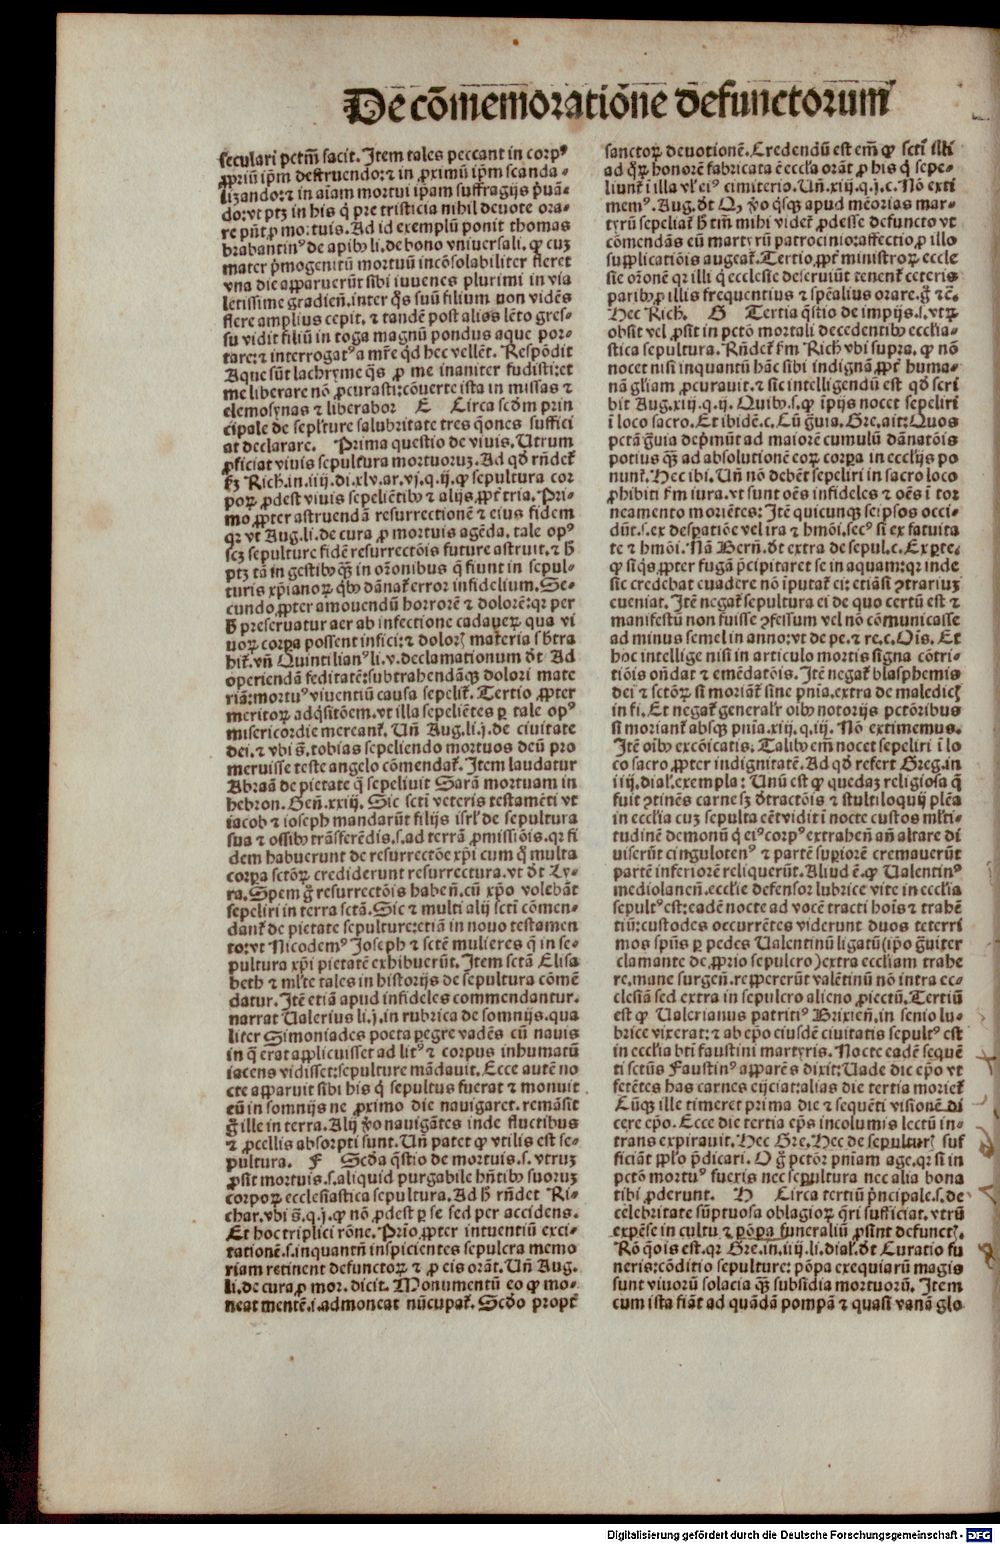 De cōmemoratiōne defunctorum
seculari pctm̄ facit. Item tales peccant in corpꝰ
ꝓpriū ipm̄ destruendo: ⁊ in ꝓximū ipm̄ scanda⸗
lizando: ⁊ in aīam mortui ipam suffragijs p̄uā⸗
do: vt ptꝫ in his q̄ pre tristicia nihil deuote ora⸗
re pn̄t ꝓ mortuis. Ad id exemplū ponit thomas
brabantinꝰ de apibꝰ li. de bono vniuersali. ꝙ cuꝫ
mater p̄mogenitū mortuū incōsolabiliter fleret
vna die apparuerūt sibi iuuenes plurimi in via
letissime gradien̄. inter q̄s suū filium non vidēs
flere amplius cepit. ⁊ tandē post alios lēto gres⸗
su vidit filiū in toga magnū pondus aque por⸗
tare: ⁊ interrogatꝰ a mr̄e qd̄ hec vellēt. Respōdit
Aque sūt lachryme q̄s ꝓ me inaniter fudisti: et
me liberare nō ꝓcurasti: cōuerte ista in missas ⁊
elemosynas ⁊ liberabor E Circa scd̄m prin
cipale de sepl̄ture salubritate tres q̄ones suffici
at declarare. Prima questio de viuis. Utrum
ꝓficiat viuis sepultura mortuoruꝫ. Ad qd̄ rn̄det̄
ẜm Rich. in. iiij. di. xlv. ar. vj. q. ij. ꝙ sepultura cor
poꝝ ꝓdest viuis sepeliētibꝰ ⁊ alijs ꝓpt̄ tria. Pri⸗
mo ꝓpter astruendā resurrectionē ⁊ eius fidem
qꝛ vt Aug. li. de cura ꝓ mortuis agēda. tale opꝰ
scꝫ sepulture fidē resurrectōis future astruit. ⁊ h̄
ptꝫ tā in gestibꝰ q̄ꝫ in orōnibus q̄ fiunt in sepul⸗
turis xp̄ianoꝝ qb̄ꝰ dānat̄ error infidelium. Se⸗
cundo ꝓpter amouendū horrorē ⁊ dolorē: qꝛ per
h̄ preseruatur aer ab infectione cadaueꝝ qua vi
uoꝝ corꝑa possent infici: ⁊ doloris materia sb̄tra
hit̄. vn̄ Quintilianꝰ li. v. declamationum dt̄ Ad
operiendā feditatē: subtrahendāqꝫ dolori mate
riā: mortuꝰ viuentiū causa sepelit̄. Tertio ꝓpter
meritoꝝ adqsitōem. vt illa sepeliētes ꝑ tale opꝰ
misericordie mereant̄. Un̄ Aug. li. j. de ciuitate
dei. ⁊ vbi s̄. tobias sepeliendo mortuos deū pro
meruisse teste angelo cōmendat̄. Item laudatur
Abraā de pietate q̄ sepeliuit Sarā mortuam in
hebron. Gen̄. xxiij. Sic scti veteris testamēti vt
iacob ⁊ ioseph mandarūt filijs isrl̄ de sepultura
sua ⁊ ossibꝰ trāsferēdis. s. ad terrā ꝓmissiōis. qꝛ fi
dem habuerunt de resurrectōe xp̄i cum q̄ multa
corꝑa sctōꝝ crediderunt resurrectura. vt dt̄ Ly⸗
ra. Spem ḡ resurrectōis haben̄. cū xp̄o volebāt
sepeliri in terra sctā. Sic ⁊ multi alij scti cōmen⸗
dant̄ de pietate sepulture: etiā in nouo testamen
to: vt Nicodemꝰ Joseph ⁊ sctē mulieres q̄ in se⸗
pultura xp̄i pietatē exhibuerūt. Item sctā Elisa
beth ⁊ ml̄te tales in historijs de sepultura cōmē
datur. Itē etiā apud infideles commendantur.
narrat Ualerius li. j. in rubrica de somnijs. qua
liter Simoniades poeta ꝑegre vadēs cū nauis
in q̄ erat applicuisset ad litꝰ ⁊ corpus inhumatū
iacens vidisset: sepulture mādauit. Ecce autē no
cte apparuit sibi his q̄ sepultus fuerat ⁊ monuit
eū in somnijs ne ꝓximo die nauigaret. remāsit
ḡ ille in terra. Alij v̄o nauigātes inde fluctibus
⁊ ꝓcellis absorpti sunt. Un̄ patet ꝙ vtilis est se⸗
pultura. F Scd̄a q̄stio de mortuis. s. vtruꝫ
ꝓsit mortuis. s. aliquid purgabile hn̄tibꝰ suoruꝫ
corpoꝝ ecclesiastica sepultura. Ad h̄ rn̄det Ri⸗
char. vbi s̄. q. j. ꝙ nō ꝓdest ꝑ se sed per accidens.
Et hoc triplici rōne. Prīo ꝓpter intuentiū exci⸗
tationē. s. inquantū inspicientes sepulcra memo
riam retinent defunctoꝝ ⁊ ꝓ eis orāt. Un̄ Aug.
li. de cura ꝓ mor. dicit. Monumentū eo ꝙ mo⸗
neat mentē. i. admoneat nūcupat̄. Scd̄o propt̄
sanctoꝝ deuotionē. Credendū est em̄ ꝙ scti illi
ad q̄ꝝ honorē fabricata ē eccl̄a orāt ꝓ his q̄ sepe⸗
liunt̄ ī illa vl̄ eiꝰ cimiterio. Un̄. xiij. q. j. c. Nō exti
memꝰ. Aug. dt̄ Qꝫ v̄o qsqꝫ apud mēorias mar⸗
tyrū sepeliat̄ h̄ tm̄ mihi videt̄ ꝓdesse defuncto vt
cōmendās eū martyrū patrocinio: affectio ꝓ illo
supplicatiōis augeat̄. Tertio ꝓpt̄ ministroꝝ eccle
sie orōnē qꝛ illi q̄ ecclesie deseruiūt tenent̄ ceteris
paribꝰ ꝓ illis frequentius ⁊ sp̄ēalius orare. ḡ ⁊ē.
Hec Rich. G Tertia q̄stio de impijs. s. vtꝝ
obsit vel ꝓsit in pctō mortali decedentibꝰ ecclia⸗
stica sepultura. Rn̄det̄ ẜm Rich vbi supra. ꝙ nō
nocet nisi inquantū hāc sibi indignā ꝓpt̄ huma⸗
nā gl̄iam ꝓcurauit. ⁊ sic intelligendū est qd̄ scri
bit Aug. xiij. q. ij. Quibꝰ. s. ꝙ īpijs nocet sepeliri
ī loco sacro. Et ibidē. c. Cū g̈uia. Gre. ait: Quos
pctā g̈uia dep̄mūt ad maiorē cumulū dānatōis
potius q̄ꝫ ad absolutionē eoꝝ corꝑa in ecclijs po
nunt̄. Hec ibi. Un̄ nō debēt sepeliri in sacro loco
ꝓhibiti ẜm iura. vt sunt oēs infideles ⁊ oēs ī tor
neamento moriētes: Itē quicunqꝫ seipsos occi⸗
dūt. s. ex despatiōe vel ira ⁊ hmōi. secꝰ si ex fatuita
te ⁊ hmōi. Nā Bern̄. dt̄ extra de sepul. c. Ex ꝑte.
ꝙ siqs ꝓpter fugā p̄cipitaret se in aquam: qꝛ inde
sic credebat euadere nō īputat̄ ei: etiāsi ꝯtrariuꝫ
eueniat. Itē negat̄ sepultura ei de quo certū est ⁊
manifestū non fuisse ꝯfessum vel nō cōmunicasse
ad minus semel in anno: vt de pe. ⁊ re. c. Oīs. Et
hoc intellige nisi in articulo mortis signa cōtri⸗
tiōis on̄dat ⁊ emēdatōis. Itē negat̄ blasphemis
dei ⁊ sctōꝝ si moriāt̄ sine pn̄ia. extra de maledicis
in fi. Et negat̄ generalr̄ oībꝰ notorijs pctōribus
si moriant̄ absqꝫ pn̄ia. xiij. q. iij. Nō extimemus.
Itē oībꝰ excōicatis. Talibꝰ em̄ nocet sepeliri ī lo
co sacro ꝓpter indignitatē. Ad qd̄ refert Greg. in
iiij. dial̄. exempla: Unū est ꝙ quedaꝫ religiosa q̄
fuit ꝯtinēs carne sꝫ dt̄ractōis ⁊ stultiloquij plēa
in ecclia cuꝫ sepulta eēt vidit ī nocte custos ml̄ti⸗
tudinē demonū q̄ eiꝰ corpꝰ extrahen̄ an̄ altare di
uiserūt cingulotenꝰ ⁊ partē supiorē cremauerūt
partē inferiorē reliquerūt. Aliud ē. ꝙ Ualentinꝰ
mediolanen̄. ecclie defensor lubrice vite in ecclia
sepultꝰ est: eadē nocte ad vocē tracti hoīs ⁊ trahē
tiū: custodes occurrētes viderunt duos teterri
mos spūs ꝑ pedes Ualentinū ligatū (ipo g̈uiter
clamante de ꝓprio sepulcro) extra eccliam trahe
re. mane surgen̄. reppererūt valētinū nō intra ec⸗
clesiā sed extra in sepulcro alieno ꝓiectū. Tertiū
est ꝙ Ualerianus patritiꝰ Brixien̄. in senio lu⸗
brice vixerat: ⁊ ab ep̄o eiusdē ciuitatis sepultꝰ est
in ecclia bti faustini martyris. Nocte eadē sequē
ti sctūs Faustinꝰ apparēs dixit: Uade dic ep̄o vt
fetētes has carnes eijciat: alias die tertia moriet̄
Cūqꝫ ille timeret prima die ⁊ sequēti visionē di
cere ep̄o. Ecce die tertia ep̄s incolumis lectū in⸗
trans expirauit. Hec Gre. Hec de sepulturis suf
ficiāt pplo p̄dicari. O ḡ pctōꝛ pn̄iam age. qꝛ si in
pctō mortuꝰ fueris nec sepultura nec alia bona
tibi ꝓderunt. H Circa tertiū p̄ncipale. s. de
celebritate sūptuosa oblagioꝝ q̄ri sufficiat. vtrū
expēse in cultu ⁊ pōpa funeraliū ꝓsint defunctis.
Rō q̄ois est. qꝛ Gre. in. iiij. li. dial̄. dt̄ Curatio fu
neris: cōditio sepulture: pōpa exequiarū magis
sunt viuorū solacia q̄ꝫ subsidia mortuorū. Item
cum ista fiāt ad quādā pompā ⁊ quasi vanā glo
Digitalisierung gefördert durch die Deutsche Forschungsgemeinschaft - DFG